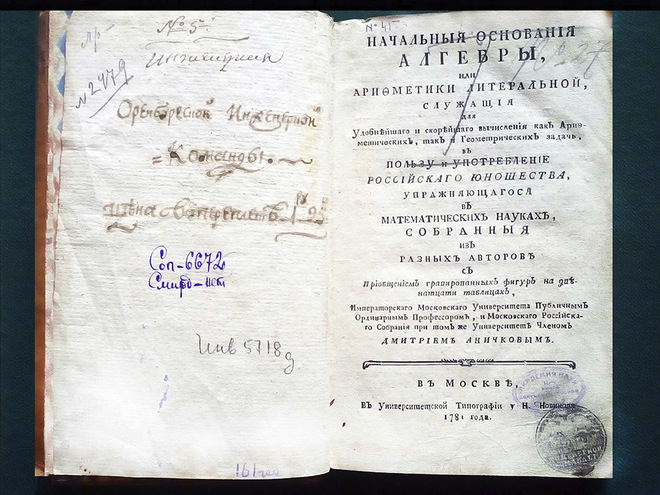 № 5
№ 2479
Оренбургской Инженерной
Команды.
цѣна въ переплетѣ 1 р 95
Соп-6672
Инв 5718
161
№ 41
НАЧАЛЬНЫЯ ОСНОВАНІЯ
АЛГЕБРЫ,
ИЛИ
АРИѲМЕТИКИ ЛИТЕРАЛЬНОЙ,
СЛУЖАЩІЯ
для
Удобнѣйшаго и скорѣйшаго вычисленія какъ Ариѳ-
метическихъ, такъ и Геометрическихъ задачь,
въ
ПОЛЬЗУ и УПОТРЕБЛЕНІЕ
РОССІЙСКАГО ЮНОШЕСТВА,
УПРАЖНЯЮЩАГОСЯ
ВЪ
МАТЕМАТИЧЕСКИХЪ НАУКАХЪ,
СОБРАННЫЯ
ИЗЪ
РАЗНЫХЪ АВТОРОВЪ
СЪ
Пріобщеніемъ грыдорованныхъ фигуръ на двѣ-
натцати таблицахъ,
Императорскаго Московскаго Университета Публичнымъ
Ординарнымъ Профессоромъ, и Московскаго Россійска-
го Собранія при томъ же Университетѣ Членомъ
ДМИТРІЕМЪ АНИЧКОВЫМЪ.
ВЪ МОСКВѢ,
Въ Университетской Типографіи у Н. Новикова
1781 года.